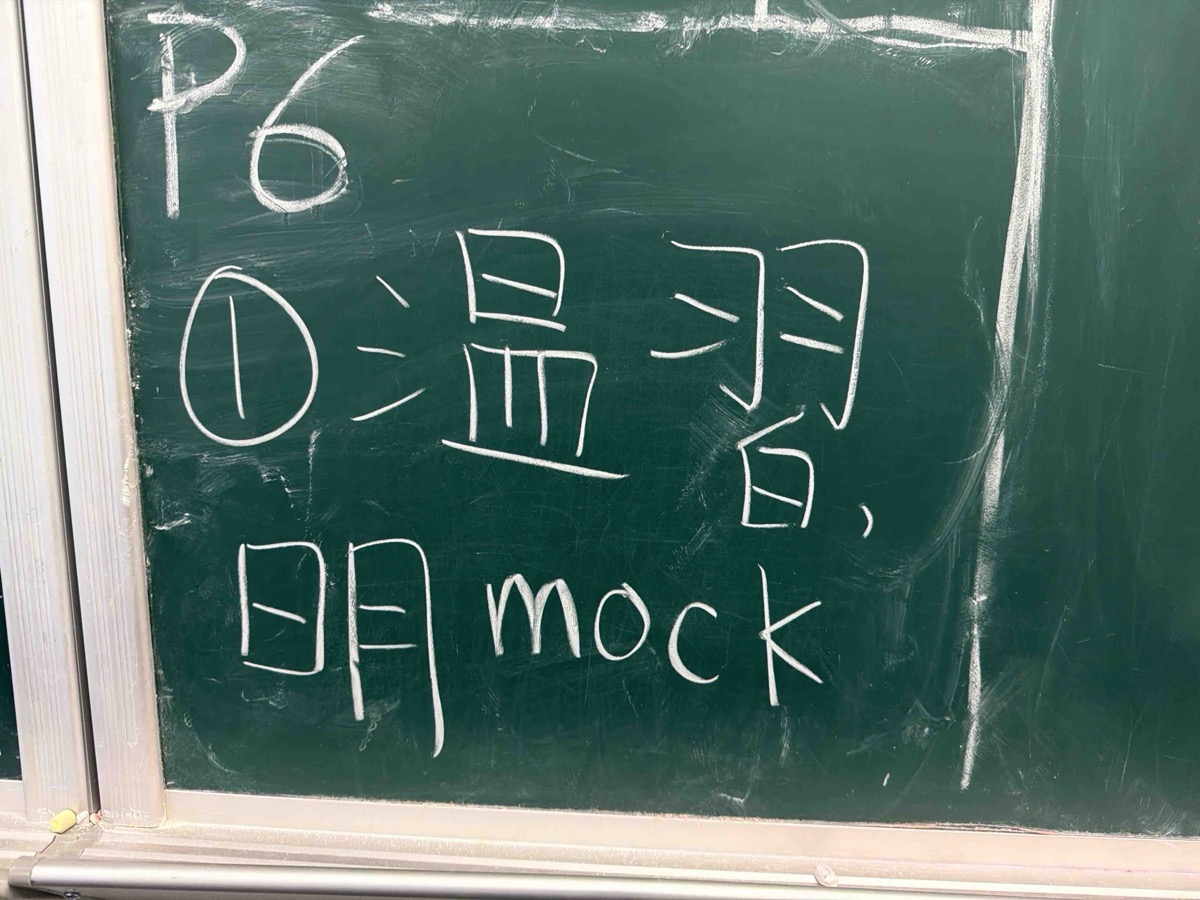 P6
①温習,
明mock